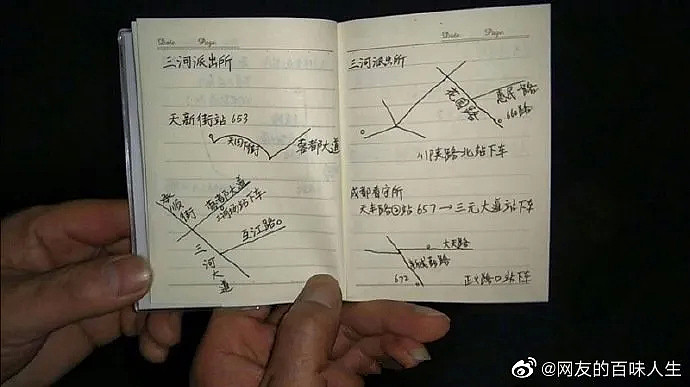 Date Page
三河派出所
天新街站 653
天回街
蓉都大道
顺街
蓉都大道
三河场站下车
互江路
三河大道
Date Page
三河派出所
花园路
惠民路
660路
川陕路北站下车
成都看守所
天丰路②站 657→三元大道站下车
大天路
672
正义路口站下车
@网友的百味人生